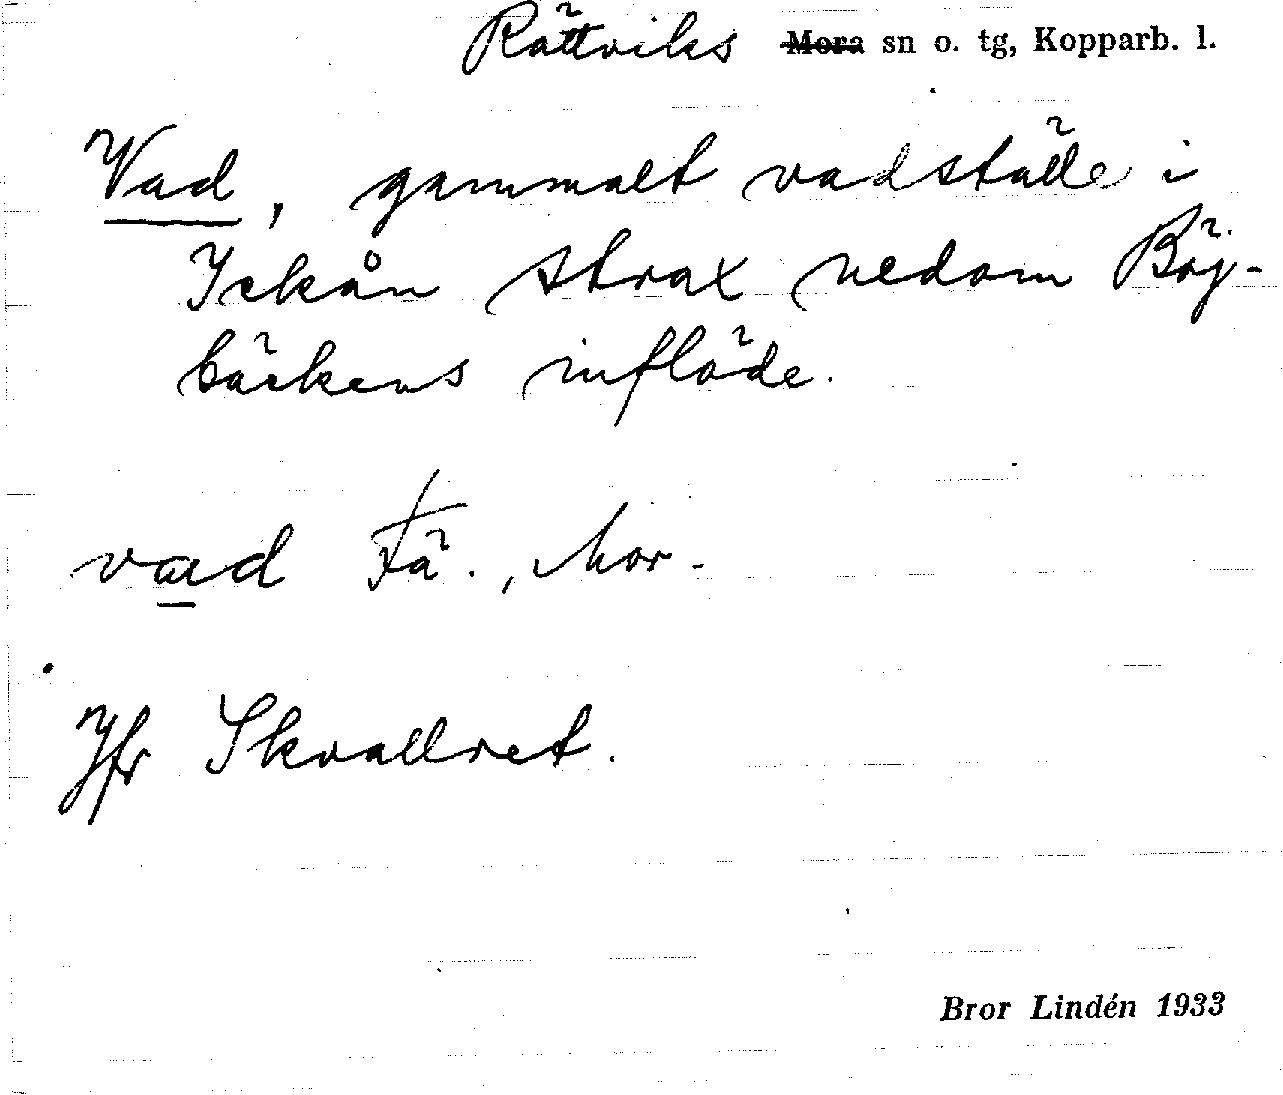 Rättviks Mora sn o. tg, Kopparb. l.
Vad, gammalt vadställe i
Ickån strax nedom Böj-
bäckens inflöde.
vad Fä., Mor.
Jfr Skvallret.
Bror Lindén 1933